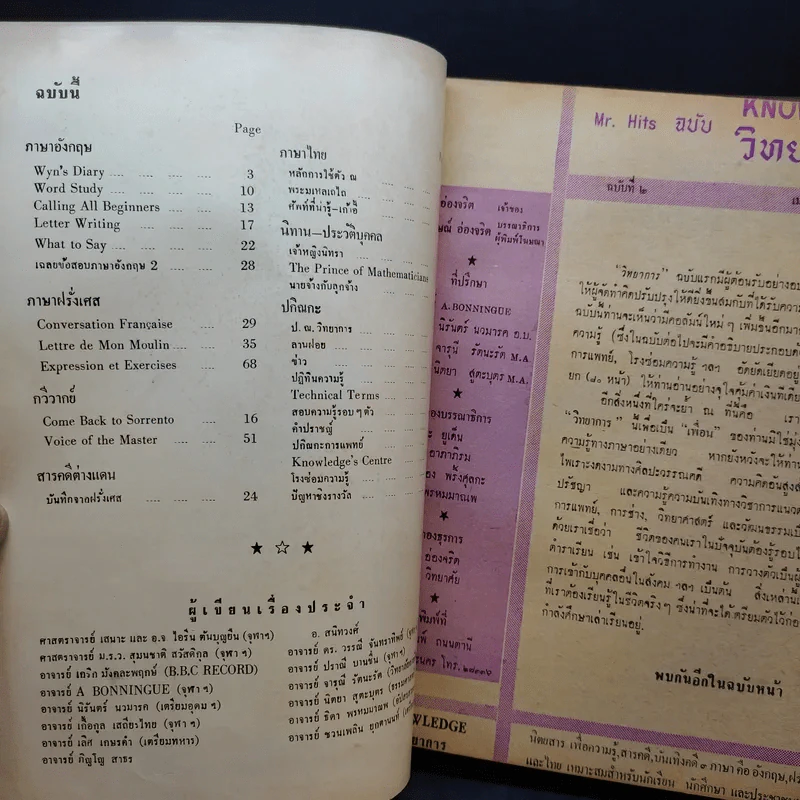 ฉบับนี้
Page
ภาษาอังกฤษ
Wyn's Diary .... .... .... 3
Word Study .... .... .... 10
Calling All Beginners .... .... 13
Letter Writing .... .... 17
What to Say .... .... 22
เฉลยข้อสอบภาษาอังกฤษ 2 .... .... 28
ภาษาฝรั่งเศส
Conversation Française .... 29
Lettre de Mon Moulin .... .... 35
Expression et Exercises .... 68
กวีวากย์
Come Back to Sorrento .... 16
Voice of the Master .... .... 51
สารคดีต่างแดน
บันทึกจากฝรั่งเศส .... .... 24
ภาษาไทย
หลักการใช้ตัว ณ
พระมเหลเถไถ
ศัพท์ที่น่ารู้–เก้าอี้
นิทาน–ประวัติบุคคล
เจ้าหญิงนิทรา
The Prince of Mathematicians
นายจ้างกับลูกจ้าง
ปกิณกะ
ป. ณ. วิทยาการ
ลานฝอย
ข่าว
ปฏิทินความรู้
Technical Terms
สอบความรู้รอบๆตัว
คำปราชญ์
ปกิณกะการแพทย์
Knowledge's Centre
โรงซ่อมความรู้
ปัญหาชิงรางวัล
★ ☆ ★
ผู้เขียนเรื่องประจำ
ศาสตราจารย์ เสนาะ และ อ.จ ไอริน ตันบุญยืน (จุฬาฯ)
ศาสตราจารย์ ม.ร.ว. สุมนชาติ สวัสดิกุล (จุฬาฯ)
อาจารย์ เถริก มังคละพฤกษ์ (B.B.C RECORD)
อาจารย์ A BONNINGUE (จุฬาฯ)
อาจารย์ นิรันตร์ นวมารค (เตรียมอุดมฯ)
อาจารย์ เกื้อกูล เสถียรไทย (จุฬาฯ)
อาจารย์ เลิศ เกษรคำ (เตรียมทหาร)
อาจารย์ ภิญโญ สาธร
อ. สนิทวงศ์
อาจารย์ ดร. วรรณี จันทราทิพย์
อาจารย์ ปราณี บานชื่น (จุฬาฯ)
อาจารย์ จารุณี รัตนะรัต
อาจารย์ นิตยา สูตะบุตร
อาจารย์ ธิดา พรหมมาณพ
อาจารย์ ชวนเพลิน
Mr. Hits ฉบับ
ฉบับที่ ๒
อ่องจริต เจ้าของ
อ่องจริต บรรณาธิการ
ผู้พิมพ์โฆษณา
★
ที่ปรึกษา
A. BONNINGUE
นิรันตร์ นวมารค อ.บ.
จารุณี รัตนะรัต M.A.
นิตยา สูตะบุตร M.A.
★
ยูเด็น
★
อ่องจริต
★
ถนนตานี
โทร. ๒๘๓๓๖
"วิทยาการ" ฉบับแรกมีผู้ต้อนรับอย่างอบ
ให้ผู้จัดทำคิดปรับปรุงให้ดียิ่งขึ้นสมกับที่ได้รับความ
ฉบับนี้ท่านจะเห็นว่ามีคอลัมน์ใหม่ๆ เพิ่มขึ้นอีกมาก
ความรู้ (ซึ่งในฉบับต่อไปจะมีคำอธิบายประกอบด้
การแพทย์, โรงซ่อมความรู้ ฯลฯ อัดยัดเยียดอยู่
ยก (๘๐ หน้า) ให้ท่านอ่านอย่างจุใจคุ้มค่าเงินทีเดีย
อีกสิ่งหนึ่งที่ใคร่จะย้ำ ณ ที่นี้คือ เรา
"วิทยาการ" นี้เพื่อเป็น "เพื่อน" ของท่านมิใช่มุ่ง
ความรู้ทางภาษาอย่างเดียว หากยังหวังจะให้ท่าน
ไพเราะงดงามทางศิลปะวรรณคดี ความคิดอันสูงส
ปรัชญา และความรู้ความบันเทิงทางวิชาการแนวต
การแพทย์, การช่าง, วิทยาศาสตร์ และวัฒนธรรมเป็
ด้วยเราเชื่อว่า ชีวิตของคนเราในปัจจุบันต้องรู้รอบไ
ตำราเรียน เช่น เข้าใจวิธีการทำงาน การวางตัวเป็นผู้
การเข้ากับบุคคลอื่นในสังคม ฯลฯ เป็นต้น สิ่งเหล่านี้
ที่เราต้องเรียนรู้ในชีวิตจริงๆ ซึ่งน่าที่จะได้เตรียมตัวไว้ก่อน
กำลังศึกษาเล่าเรียนอยู่.
พบกันอีกในฉบับหน้า
นิตยสาร เพื่อความรู้,สารคดี,บันเทิงคดี ๓ ภาษา คือ อังกฤษ,ฝร
และไทย เหมาะสมสำหรับนักเรียน นักศึกษา และประชาช